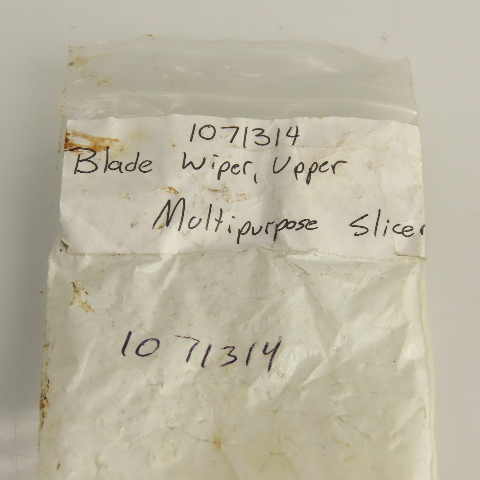 1071314
Blade Wiper, Upper
Multipurpose Slicer
1071314